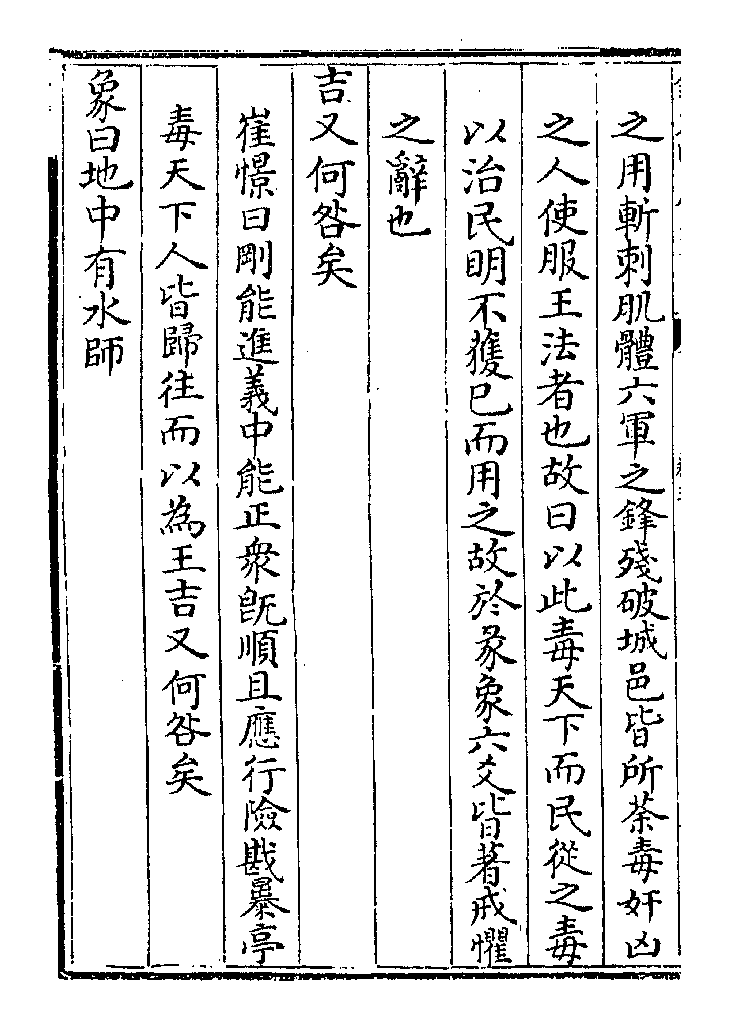 之用斬刺肌體六軍之鋒殘破城邑皆所荼毒奸凶
之人使服王法者也故曰以此毒天下而民從之毒
以治民明不獲已而用之故於彖象六爻皆著戒懼
之辭也
吉又何咎矣
崔憬曰剛能進義中能正衆旣順且應行險戡暴亭
毒天下人皆歸往而以為王吉又何咎矣
象曰地中有水師